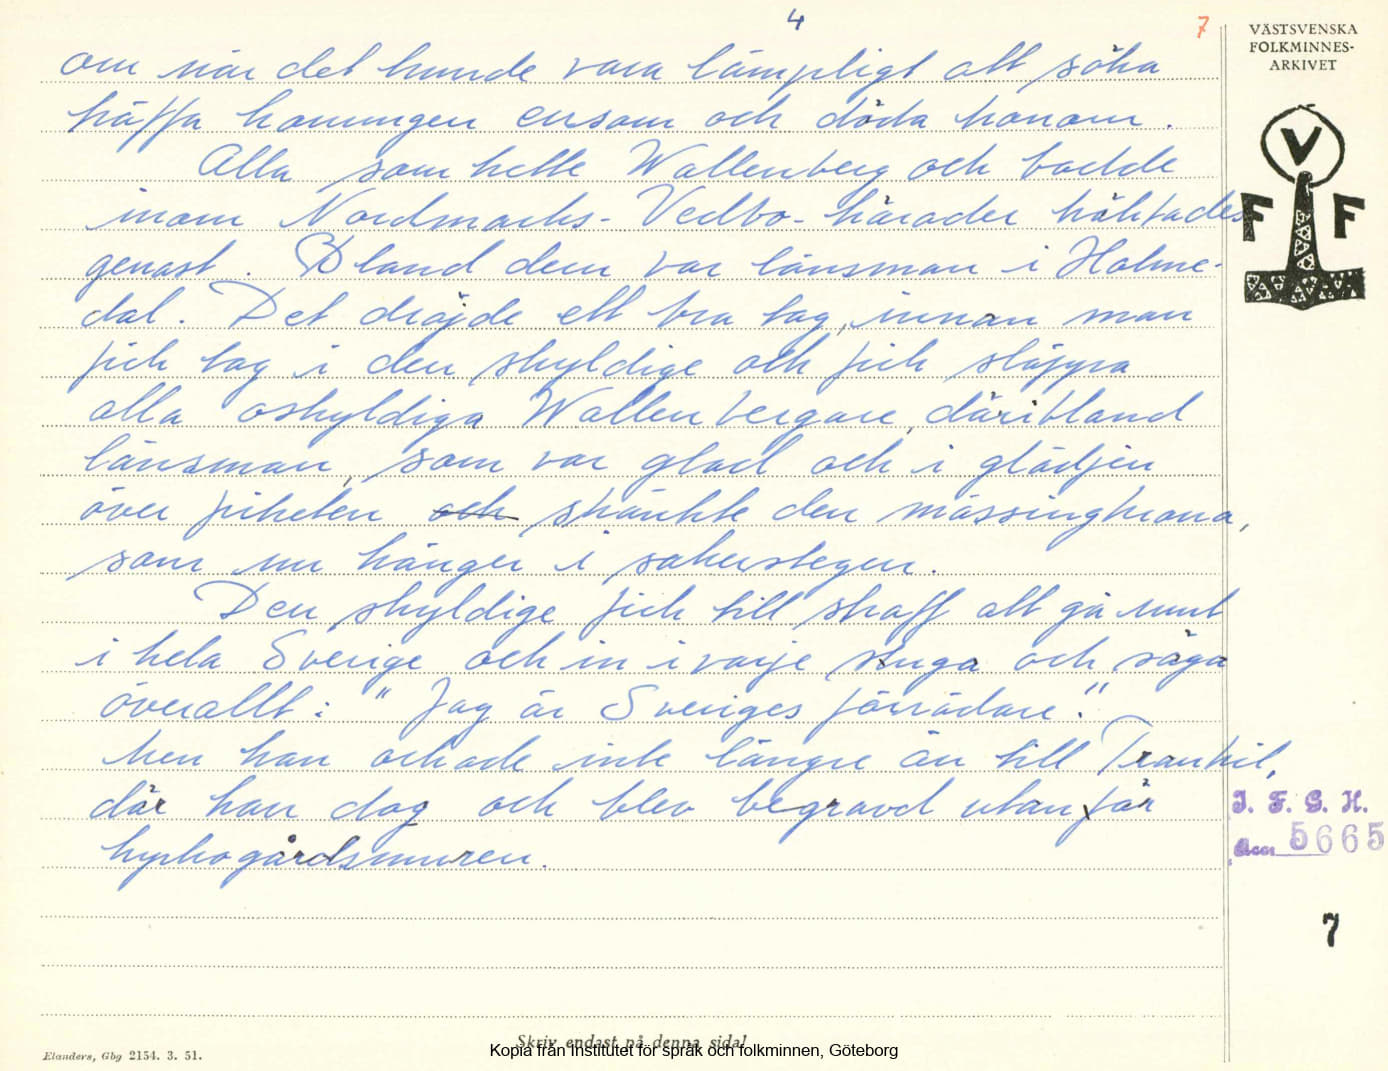 4
7
VÄSTSVENSKA
FOLKMINNES-
ARKIVET
V
F F
om när det kunde vara lämpligt att söka
träffa konungen ensam och döda honom.
Alla som hette Wallenberg och bodde
inom Nordmarks- Vedbo- härader häktades
genast. Bland dem var länsman i Holme-
dal. Det dröjde ett bra tag, innan man
fick tag i den skyldige och fick släppa
alla oskyldiga Wallenbergare, däribland
länsman, som var glad och i glädjen
över friheten och skänkte den mässingkrona,
som nu hänger i sakerstegen.
Den skyldige fick till straff att gå runt
i hela Sverige och in i varje stuga och säga
överallt: "Jag är Sveriges förrädare."
Men han orkade inte längre än till Trankil,
där han dog och blev begravd utanför
kyrkogårdsmuren.
I. F. G. H.
Acc 5665
7
Skriv endast på denna sida!
Elanders, Gbg 2154. 3. 51.
Kopia från Institutet för språk och folkminnen, Göteborg